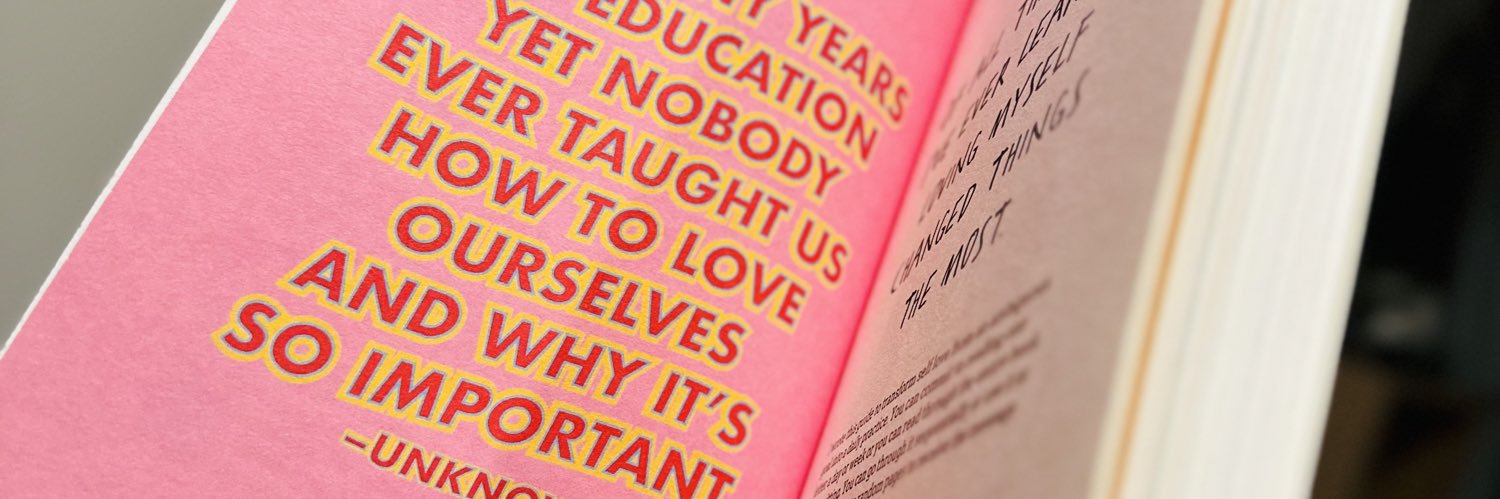 YEARS
EDUCATION
YET NOBODY
EVER TAUGHT US
HOW TO LOVE
OURSELVES
AND WHY IT'S
SO IMPORTANT
–UNKNO
EVER LEAR
LOVING MYSELF
CHANGED THINGS
THE MOST
wrote this guide to transform self love
into a daily practice. You can commit to
a day or week or you can read through the
You can go through it sequentially or
random pages to